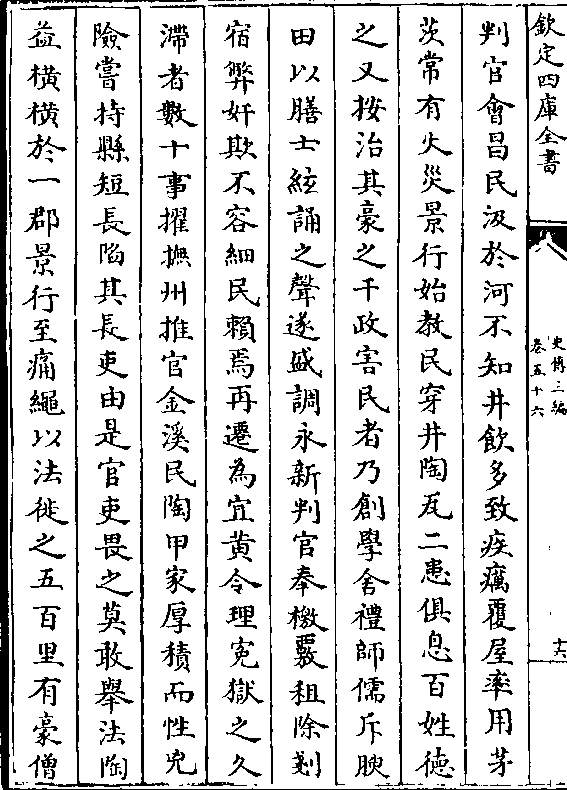 欽定四庫全書
史傳三編
卷五十六
十六
判官會昌民汲於河不知井飲多致疾癘覆屋率用茅
茨常有火災景行始教民穿井陶瓦二患俱息百姓德
之又按治其豪之干政害民者乃創學舍禮師儒斥腴
田以膳士絃誦之聲遂盛調永新判官奉檄覈租除剗
宿弊奸欺不容細民賴焉再遷為宜黄令理寃獄之久
滯者數十事擢撫州推官金溪民陶甲家厚積而性兇
險嘗持縣短長陷其長吏由是官吏畏之莫敢舉法陶
益横横於一郡景行至痛繩以法徙之五百里有豪僧